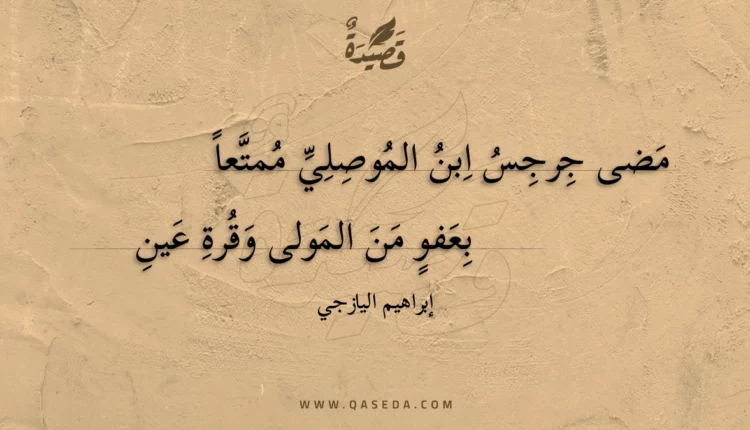 قَصِيْدَةٌ
مَضى جِرجِسُ اِبنُ المُوصِلِيِّ مُمتَّعاً
بِعَفوٍ مَنَ المَولى وَقُرةِ عَينِ
إبراهيم اليازجي
WWW.QASEDA.COM